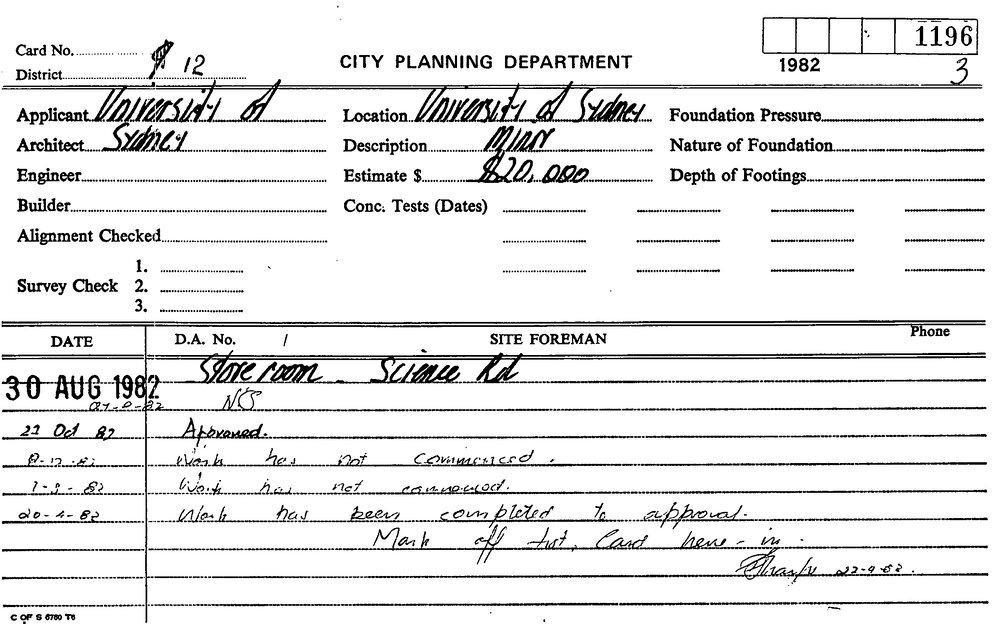 Card No.
1196
District 12
CITY PLANNING DEPARTMENT
1982
3
Applicant University of
Location University of Sydney
Foundation Pressure
Architect Sydney
Description Minor
Nature of Foundation
Engineer
Estimate $ $20,000
Depth of Footings
Builder
Conc. Tests (Dates)
Alignment Checked
1.
Survey Check 2.
3.
DATE
D.A. No. /
SITE FOREMAN
Phone
Store room - Science Rd
30 AUG 1982
22 Oct 82 Approved.
Work has not commenced.
Work has not commenced.
Work has been completed to approval.
Mark off list. Card here-in.
C OF S 6760 T6